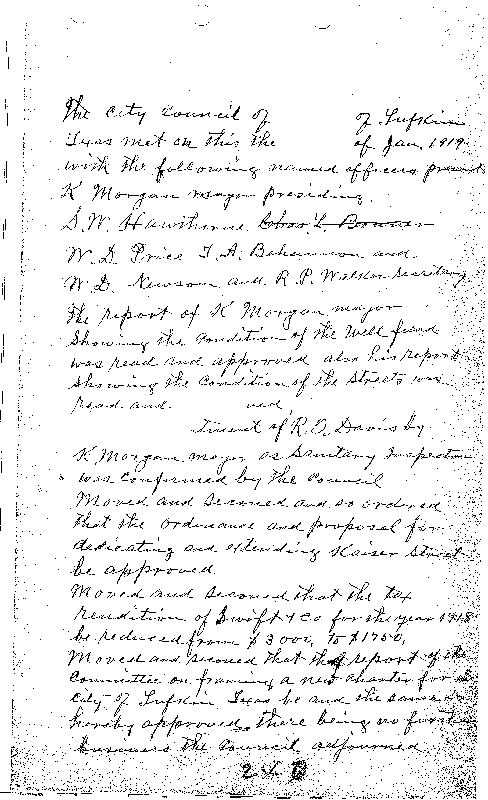 The City Council of of Lufkin
Texas met on this the of Jan, 1919
with the following named officers present
K Morgan mayor presiding.
S. W. Hawthorne Chas. L. Bonner
W. D. Price T. A. Bohannon and
W. D. Newsom and R. P. Walker secretary
The report of K Morgan mayor
showing the condition of the Well fund
was read and approved also his report
showing the condition of the streets was
read and ved
tment of R. O. Davis by
K Morgan mayor as Sanitary Inspector
was confirmed by the Council
Moved and second and so ordered
that the ordinance and proposal for
dedicating and extending Kaiser Street
be approved
Moved and second that the tax
rendition of Swift & Co for the year 1918
be reduced from $3000, to $1750,
Moved and second that the report of the
Committee on framing a new charter for
City of Lufkin Texas be and the same is
hereby approved, there being no further
the Council adjourned